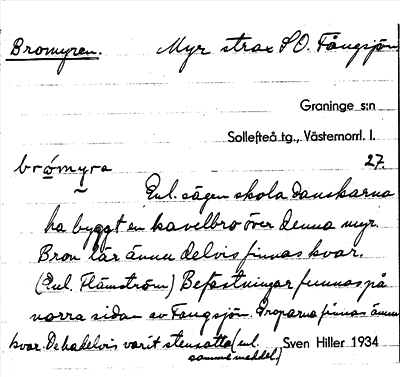 Bromyren. Myr strax S O. Fångsjön
Graninge s:n
Sollefteå tg., Västernorrl. l.
brómyra 27.
Enl. sägen skola danskarna
ha byggt en kavelbro över denna myr.
Bron lär ännu delvis finnas kvar.
(Enl. Flämström) Befästningar funnos på
norra sidan av Fångsjön. Groparna finnas ännu
kvar. De ha delvis varit stensatta (enl.
samme meddel.)
Sven Hiller 1934